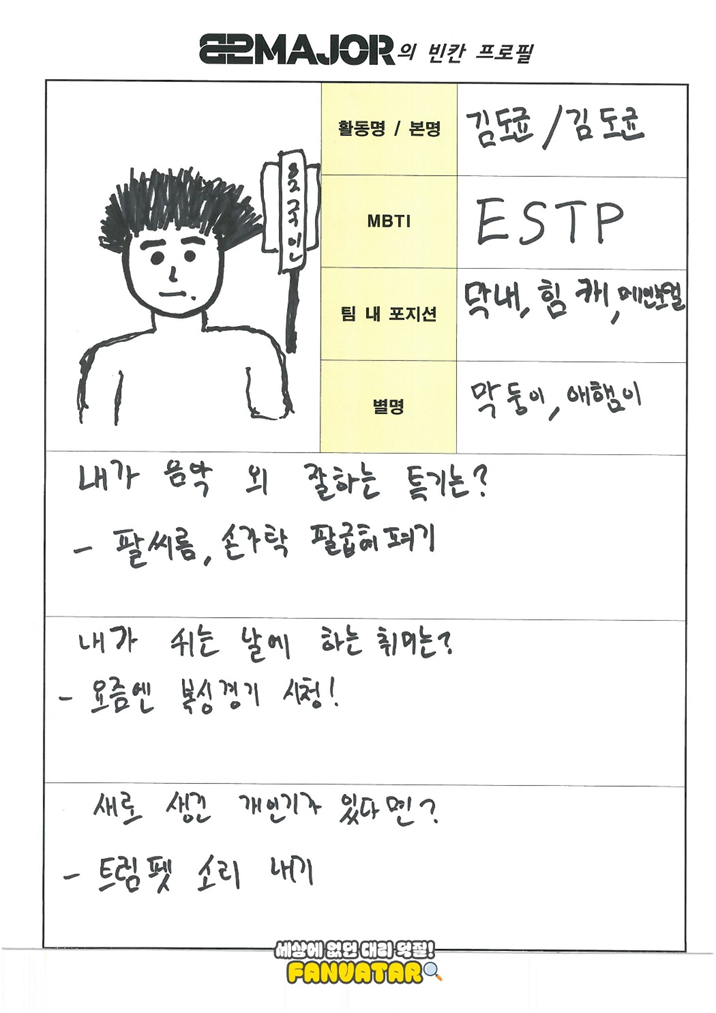 82MAJOR의 빈칸 프로필
활동명 / 본명
김도균 / 김도균
MBTI
ESTP
팀 내 포지션
막내, 힘 캐, 메인보컬
별명
막둥이, 애햄이
내가 음악 외 잘하는 특기는?
- 팔씨름, 손가락 팔굽혀펴기
내가 쉬는 날에 하는 취미는?
- 요즘엔 복싱경기 시청!
새로 생긴 개인기가 있다면?
- 트럼펫 소리 내기
세상에 없던 대리 덕질!
FANVATAR